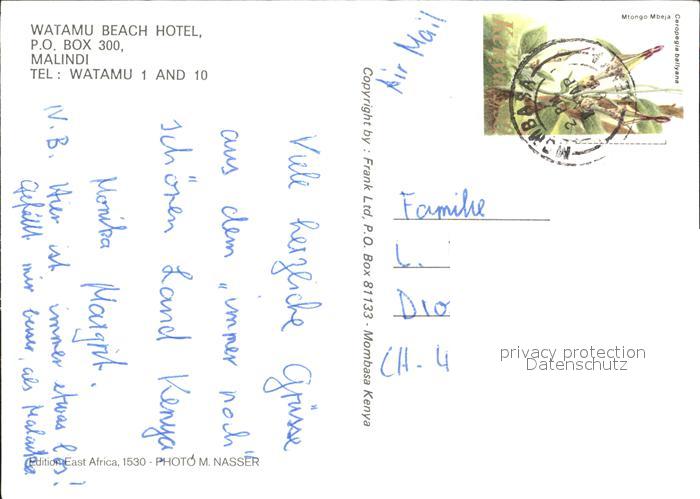 WATAMU BEACH HOTEL,
P.O. BOX 300,
MALINDI
TEL: WATAMU 1 AND 10
Viele herzliche Grüsse
aus dem "immer noch"
schönen Land Kenya
Monika Margrit.
N.B. Hier ist immer etwas los!
Gefällt mir besser, als
Edition East Africa, 1530 - PHOTO M. NASSER
Copyright by: Frank Ltd, P.O. Box 81133 - Mombasa Kenya
Air Mail
Mtongo Mbeja. Ceropegia ballyana
MOMBASA
Familie
L.
Dio
CH-4
privacy protection
Datenschutz